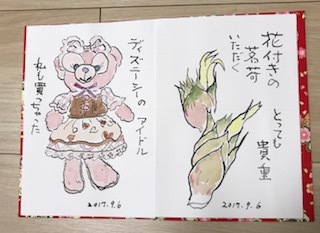 花付きの
茗荷
いただく
とっても
貴重
2017.9.6
ディズニーシーの
アイドル
私も買っちゃった
2017.9.6